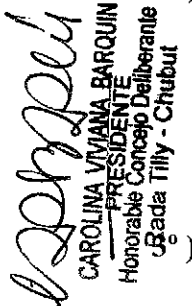 CAROLINA VIVIANA BARQUIN
PRESIDENTE
Honorable Concejo Deliberante
Rada Tilly - Chubut
º )